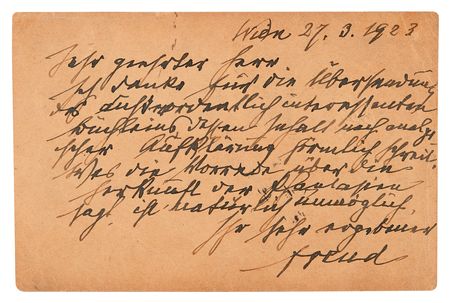 Wien 27. 3. 1923
Sehr geehrter Herr
Ich danke für die Übersendung
des außerordentlich interessanten
Büchleins, dessen Inhalt nach analyti-
scher Aufklärung förmlich schreit.
Was die Vorrede über die
Herkunft der Phantasien
sagt, ist natürlich unmöglich.
Ihr sehr ergebener
Freud